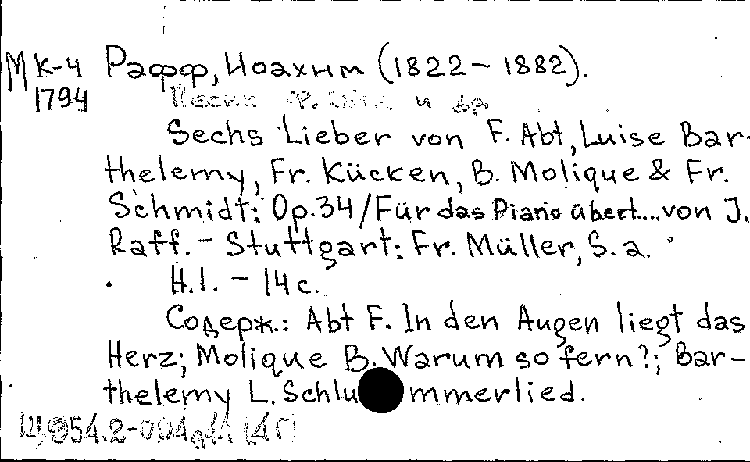 МК-4 Рафф, Иоахим (1822 - 1882).
1794 Песни и др
Sechs Lieber von F. Abt, Luise Bar-
thelemy, Fr. Kücken, B. Molique & Fr.
Schmidt: Op.34/Für das Piano übert... von J.
Raff. - Stuttgart: Fr. Müller, S. a.
H.1. - 14 c.
Содерж.: Abt F. In den Augen liegt das
Herz; Molique B. Warum so fern?; Bar-
thelemy L. Schlummerlied.